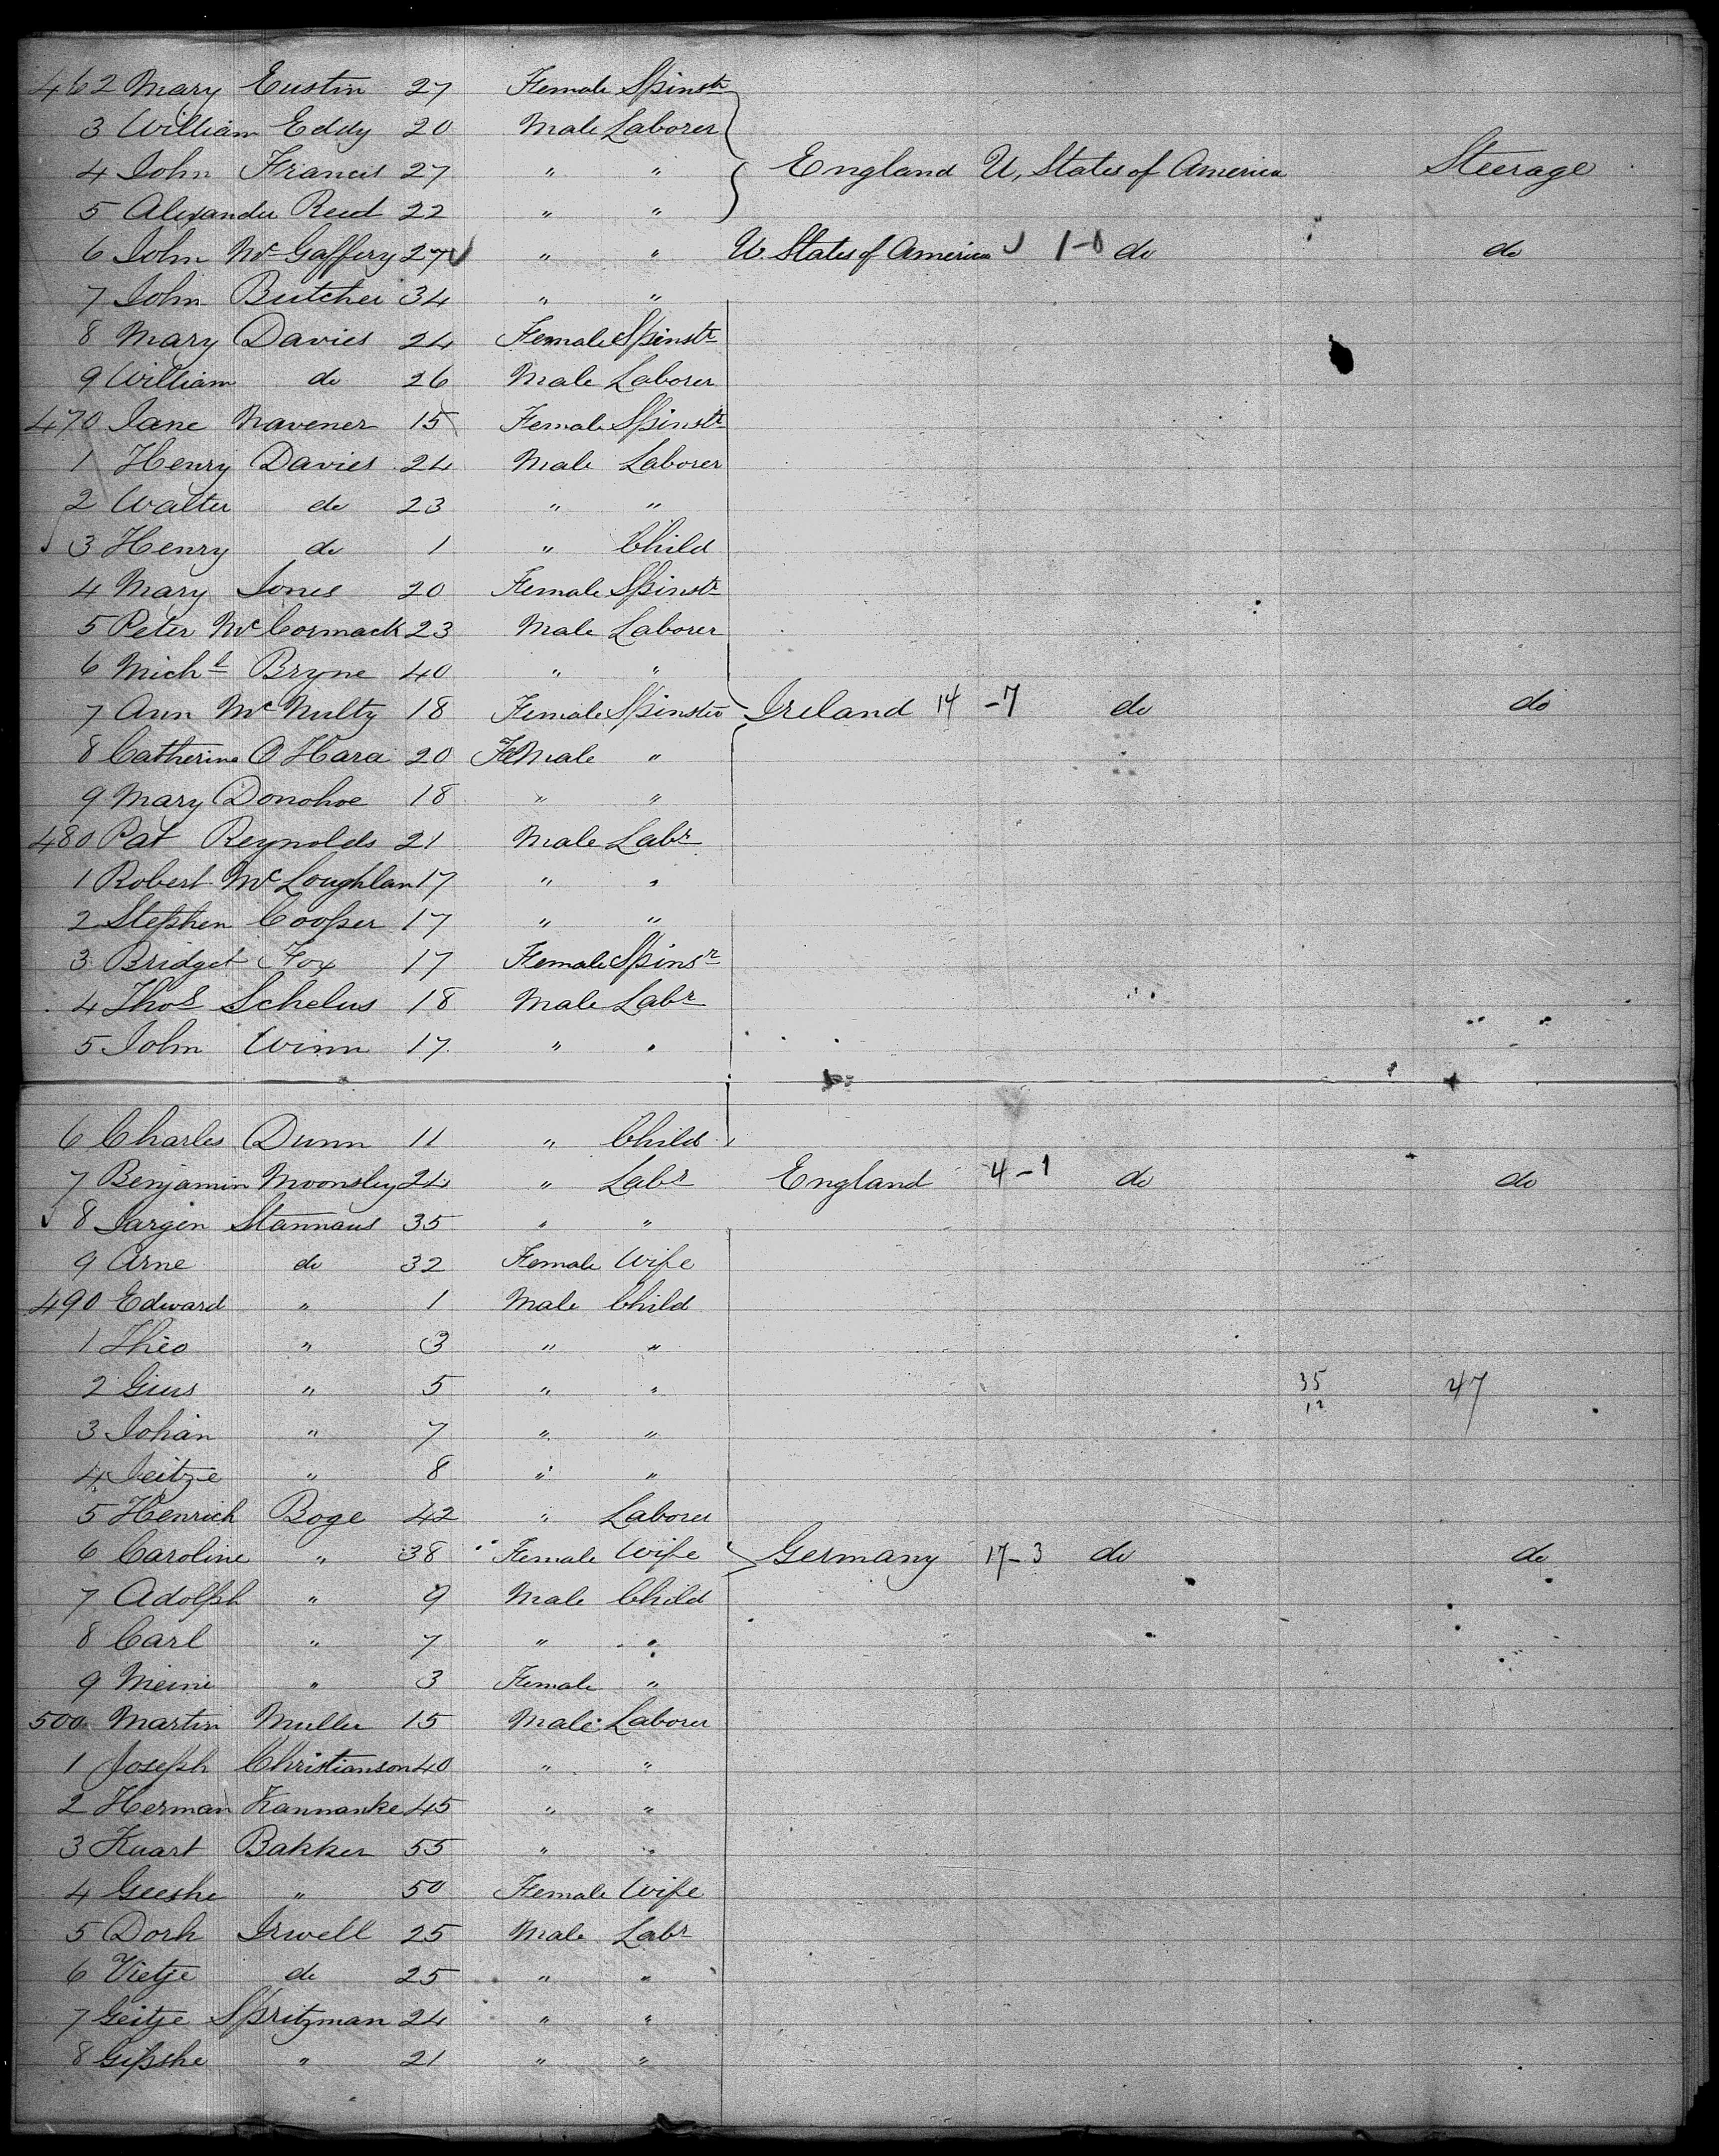 462 Mary Eustin 27 Female Spinstr
3 William Eddy 20 Male Laborer
4 John Francis 27 " " England U, States of America Steerage
5 Alexander Reed 22 " "
6 John McGaffery 27 " " U. States of America 1-0 do do
7 John Butcher 34 " "
8 Mary Davies 24 Female Spinstr
9 William do 26 Male Laborer
470 Jane Navener 15 Female Spinstr
1 Henry Davies 24 Male Laborer
2 Walter do 23 " "
3 Henry do 1 " Child
4 Mary Jones 20 Female Spinstr
5 Peter McCormack 23 Male Laborer
6 Michl Bryne 40 " "
7 Ann McNulty 18 Female Spinster Ireland 14-7 do do
8 Catherine O Hara 20 FeMale "
9 Mary Donohoe 18 " "
480 Pat Reynolds 21 Male Labr
1 Robert McLoughlan 17 " "
2 Stephen Cooper 17 " "
3 Bridget Fox 17 Female Spinsr
4 Thos Schelus 18 Male Labr
5 John Winn 17 " "
6 Charles Dunn 11 " Child
7 Benjamin Moonsley 24 " Labr England 4-1 do do
8 Jargen Stannaus 35 " "
9 Arne do 32 Female Wife
490 Edward " 1 Male Child
1 Theo " 3 " "
2 Gius " 5 " " 35 12 47
3 Johan " 7 " "
4 Jeitze " 8 " "
5 Henrich Boge 42 " Laborer
6 Caroline " 38 Female Wife Germany 17-3 do do
7 Adolph " 9 Male Child
8 Carl " 7 " "
9 Meine " 3 Female "
500 Martin Muller 15 Male Laborer
1 Joseph Christianson 40 " "
2 Herman Kannanke 45 " "
3 Kuart Bakker 55 " "
4 Geeshe " 50 Female Wife
5 Dorh Irwell 25 Male Labr
6 Vietje do 25 " "
7 Geitje Spritzman 24 " "
8 Gepshe " 21 " "